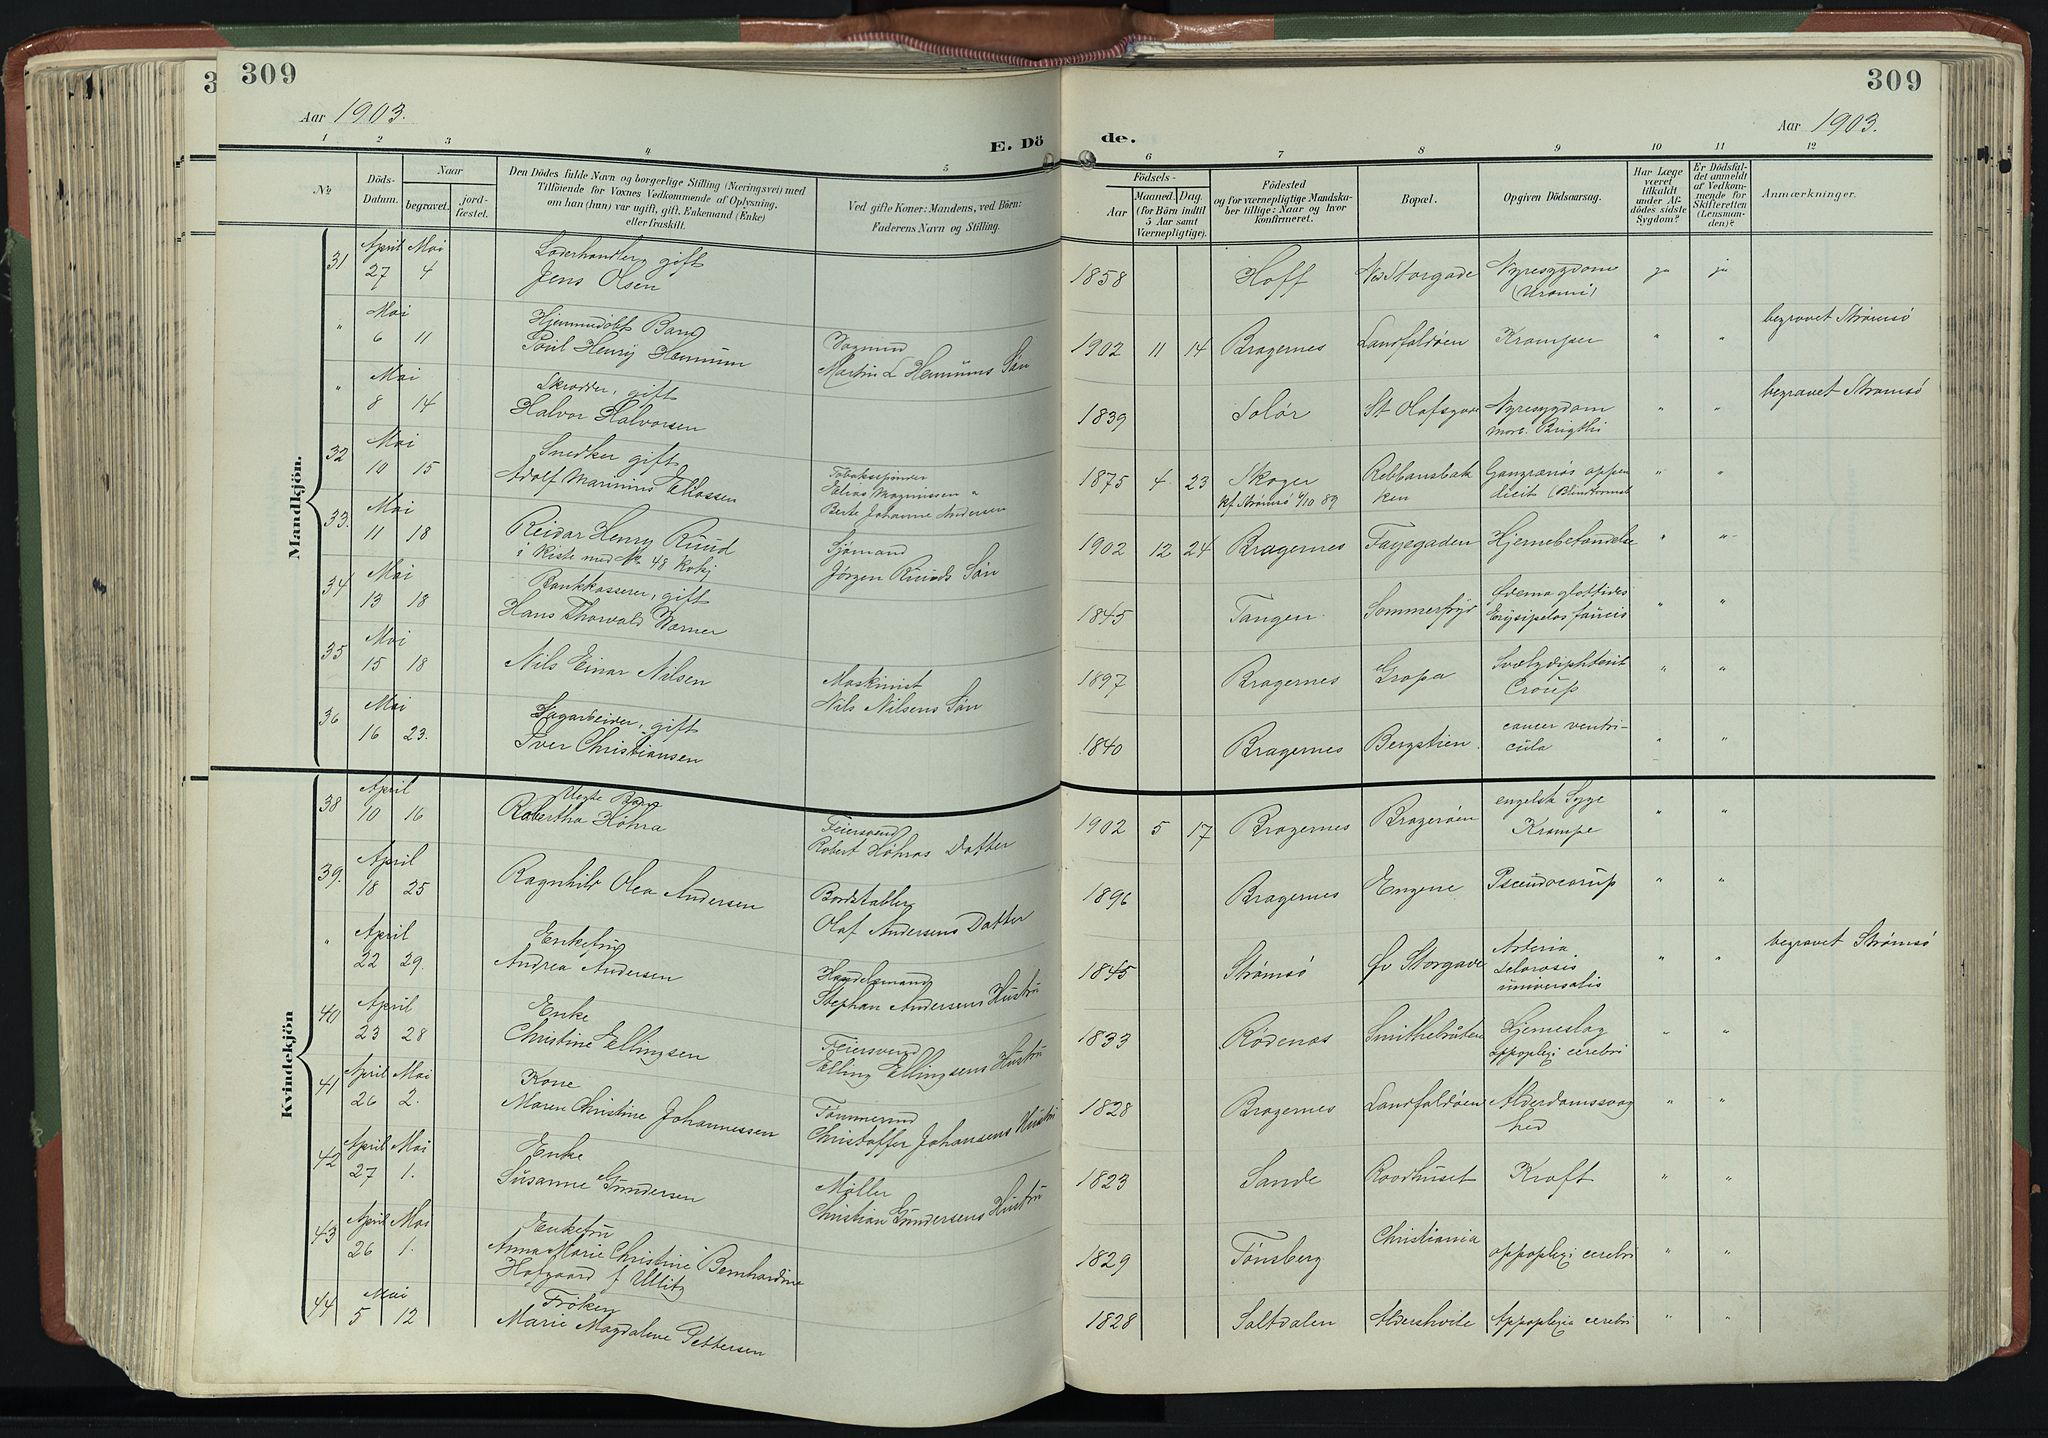 309
309
Aar 1903.
Aar 1903.
E. Dö
de.
1 2 3 4 5
6 7 8 9 10 11 12
No
Döds-Datum.
Naar
begravet.
jord-fæstet.
Den Dödes fulde Navn og borgerlige Stilling (Næringsvei) med
Tilföiende for Voxnes Vedkommende af Oplysning,
om han (hun) var ugift, gift, Enkemand (Enke)
eller fraskilt.
Ved gifte Koner: Mandens, ved Börn:
Faderens Navn og Stilling.
Födsels-
Aar
Maaned. Dag.
(for Börn indtil
5 Aar samt
Værnepligtige).
Födested
og for værnepligtige Mandska-
ber tillige: Naar og hvor
konfirmeret.
Bopæl.
Opgiven Dödsaarsag.
Har Læge
været
tilkaldt
under Af-
dödes sidste
Sygdom?
Er Dödsfal-
det anmeldt
af Vedkom-
mende for
Skifteretten
(Lensman-
den)?
Anmærkninger.
Mandkjön.
31 April 27 Mai 4 gift
Jens Olsen
1858 Hoff Storgade Nyresygdom ja ja
(Uræmi)
" Mai 6 11 Hjemmedöbt Barn
Poul Henry Hennum
Martin L Hennums Sön
1902 11 14 Bragernes Landfaldöen Kramper " " begravet Strömsö
" Mai 8 14 Skrædder, gift
Halvor Halvorsen
1839 Solör St Olafsgade Nyresygdom " " begravet Strömsö
morb. Brigthii
32 Mai 10 15 Snedker gift
Adolf Marinius Eliassen
Tobakspinder
Elias Magnussen
Berte Johanne Andersen
1875 4 23 Skoger
kf Strömsö 6/10 89
Rebbansbakken
Gangrænös appendicit (Blindtarmsb " "
33. Mai 11 18 Reidar Henry Ruud
i Kiste med No 48 Kvkj
Sjömand
Jörgen Ruuds Sön
1902 12 24 Bragernes Fayegaden Hjernebetændelse " "
34 Mai 13 18 Bankkasserer, gift
Hans Thorvald Værner
1845 Tangen Sommerfryd Ødema glottides " "
Erysipelas faucis
35 Mai 15 18 Nils Einar Nilsen
Maskinist
Nils Nilsens Sön
1897 Bragernes Gropa Svælgdiphterit " "
Croup
36 Mai 16 23. Sagarbeider, gift
Iver Christiansen
1840 Bragernes Bergstien. cancer ventricula " "
Kvindekjön
38 April 10 16 Uegte Barn
Robertha Höhra
Feiersvend
Robert Höhras Datter
1902 5 17 Bragernes Bragerøen engelsk Syge " "
Krampe
39. April 18 25 Ragnhild Olea Andersen
Bordstabler
Olaf Andersens Datter
1896 Bragernes Engene Pseudocroup " "
" April 22 29. Enkefru
Andrea Andersen
Handelsmand
Stephan Andersens Hustru
1845 Strømsö Øv Storgade Arteria " " begravet Strømsø
sclerosis
universalis
40 April 23 28 Enke
Christine Ellingsen
Feiersvend
Elling Ellingsens Hustru
1833 Rødenæs Smithebråten Hjerneslag " "
appoplexi cerebri
41 April 26 Mai 2. Kone
Maren Christine Johannessen
Tømmermd
Christoffer Johansens Hustru
1828 Bragernes Landfaldöen Alderdomssvaghed " "
42 April 27 Mai 1. Enke
Susanne Gundersen
Møller
Christian Gundersens Hustru
1823 Sande Raadhuset Kræft " "
43 April 26 Mai 1. Enkefru
Anna Marie Christine Bernhardine
Hofgaard f Ullitz
1829 Tönsberg Christiania appoplexi cerebri " "
44 Mai 5 12 Frøken
Marie Magdalene Pettersen
1828 Saltdalen Aldershvile Appoplexia cerebri " "